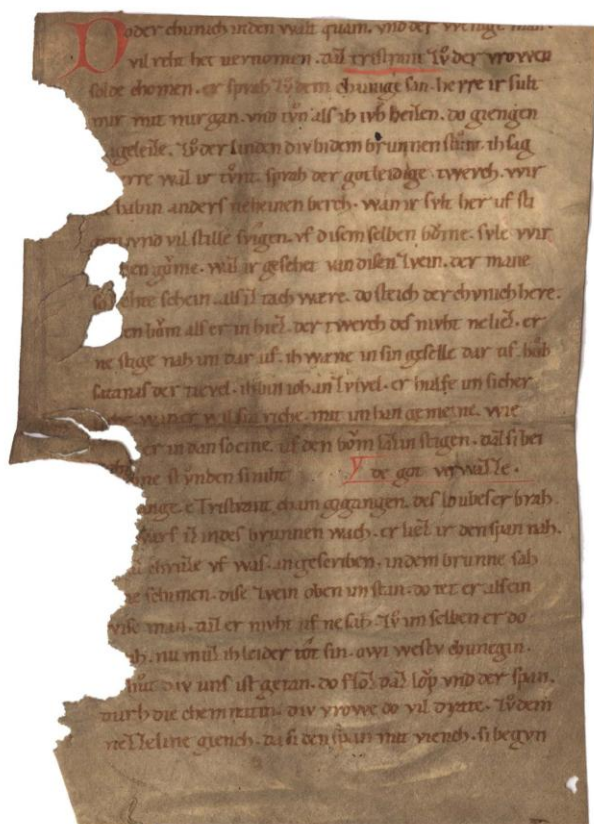 Do der chunich inden walt quam. vnd der wenige man.
vil reht het uernomen. daz tristrant zů der vrowen
solde chomen. er sprah zů dem chunige sin. herre ir sult
mir mit nur gan. vnd tůn als ih ivh heizen. do giengen
geleite. zů der linden div bi dem brunnen stůnt. ih sag
rre waz ir tůnt. sprah der gotleidige twerch. wir
habin anders neheinen berch. wan ir svlt her uf sti
gen vnd vil stille svigen. vf disem selben bǒme. svle wir
en gǒme. waz ir gesehet van disen zvein. der mane
lihte schein. als iz tach wære. do steich der chvnich here.
en bǒm als er in hiez. der twerch des nivht ne liez. er
ne stige nah im dar uf. ih wæne in sin geselle dar uf. hůb
satanas der tievel. ih bin ioh an zvivel. er hulfe im sicher
wan er wil sin riche. mit im han gemeine. wie
er in dan so eine. uf den bǒm lazin stigen. daz si bei
ne stvnden si niht Y de got verwazze.
ange. e Tristrant cham gigangen. des loubes er brah
warf iz in des brunnen vach. er liez ir den span nah.
chrivze vf was. an gescriben. in dem brunne sah
e schimen. dise zvein oben im stan. do tet er als ein
wise man. daz er nivht uf ne sah. zů im selben er do
ah. nu můz ih leider tot sin. owi westv chunegin.
hůt div uns ist getan. do flǒz daz lǒp vnd der span.
durh die chemitun. div vrowe do vil drate. zů dem
nezzeline giench. da si den span mit viench. si begvn